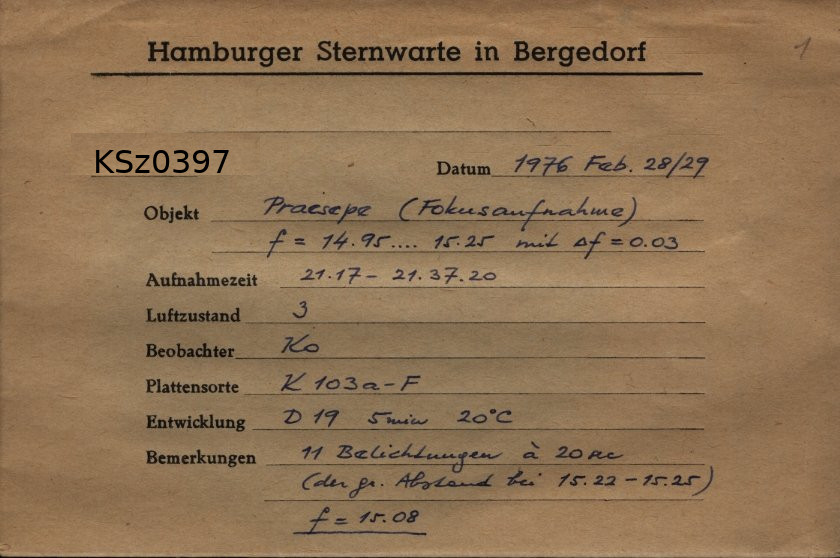 Hamburger Sternwarte in Bergedorf
1
KSz0397
Datum 1976 Feb. 28/29
Objekt Praesepe (Fokusaufnahme)
f = 14.95.... 15.25 mit Δf = 0.03
Aufnahmezeit 21.17 - 21.37.20
Luftzustand 3
Beobachter Ko
Plattensorte K 103a-F
Entwicklung D 19 5 min 20°C
Bemerkungen 11 Belichtungen à 20 sec
(der gr. Abstand bei 15.22 - 15.25)
f = 15.08